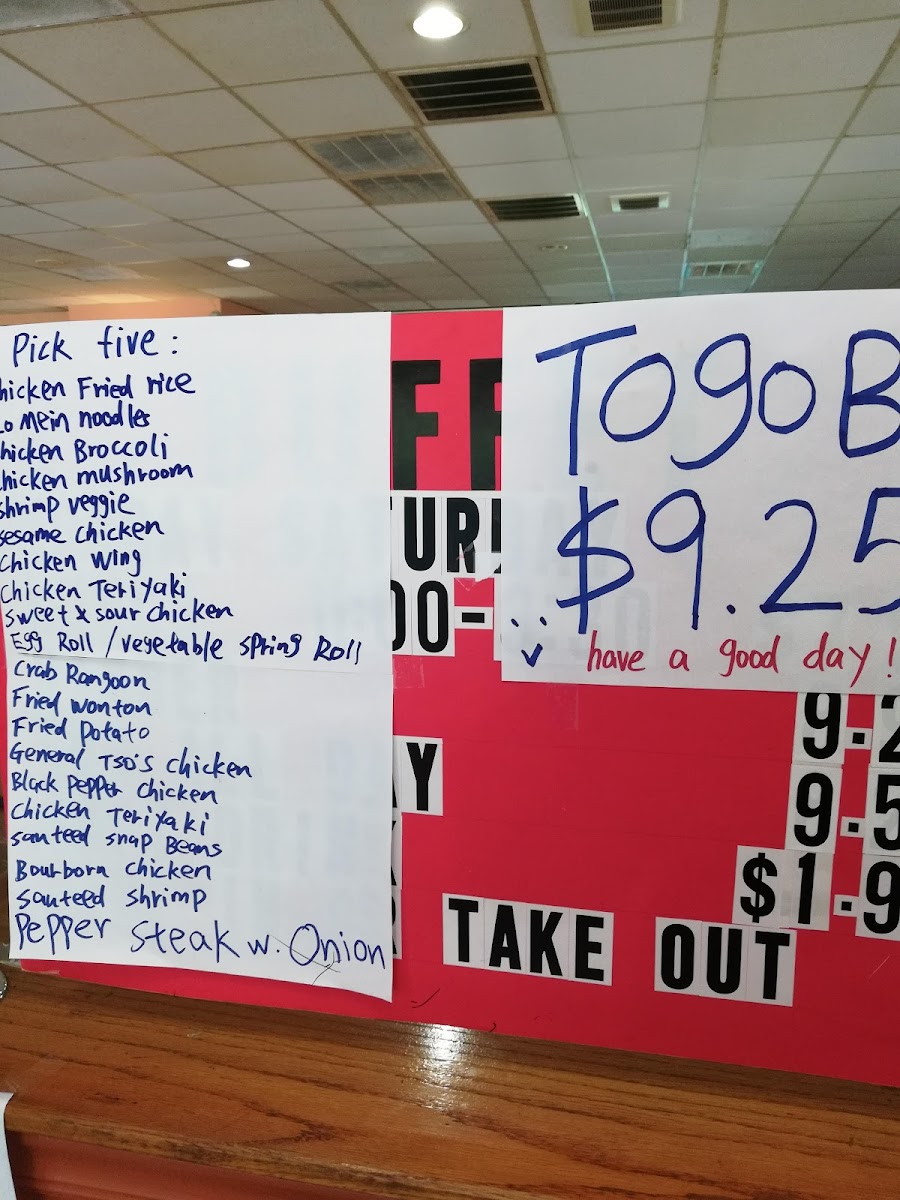 Pick five :
hicken Fried rice
Lo Mein noodles
hicken Broccoli
hicken mushroom
shrimp veggie
sesame chicken
Chicken Wing
Chicken Teriyaki
Sweet & sour chicken
Egg Roll / vegetable spring Roll
Crab Rangoon
Fried wonton
Fried potato
General TSO'S chicken
Black pepper chicken
chicken Teriyaki
santeed snap Beans
Bourborn chicken
santeed shrimp
Pepper Steak w. Onion
Togo B
$9.25
have a good day !
FF
UR
00-
9.2
Y
9.5
$1.9
TAKE OUT